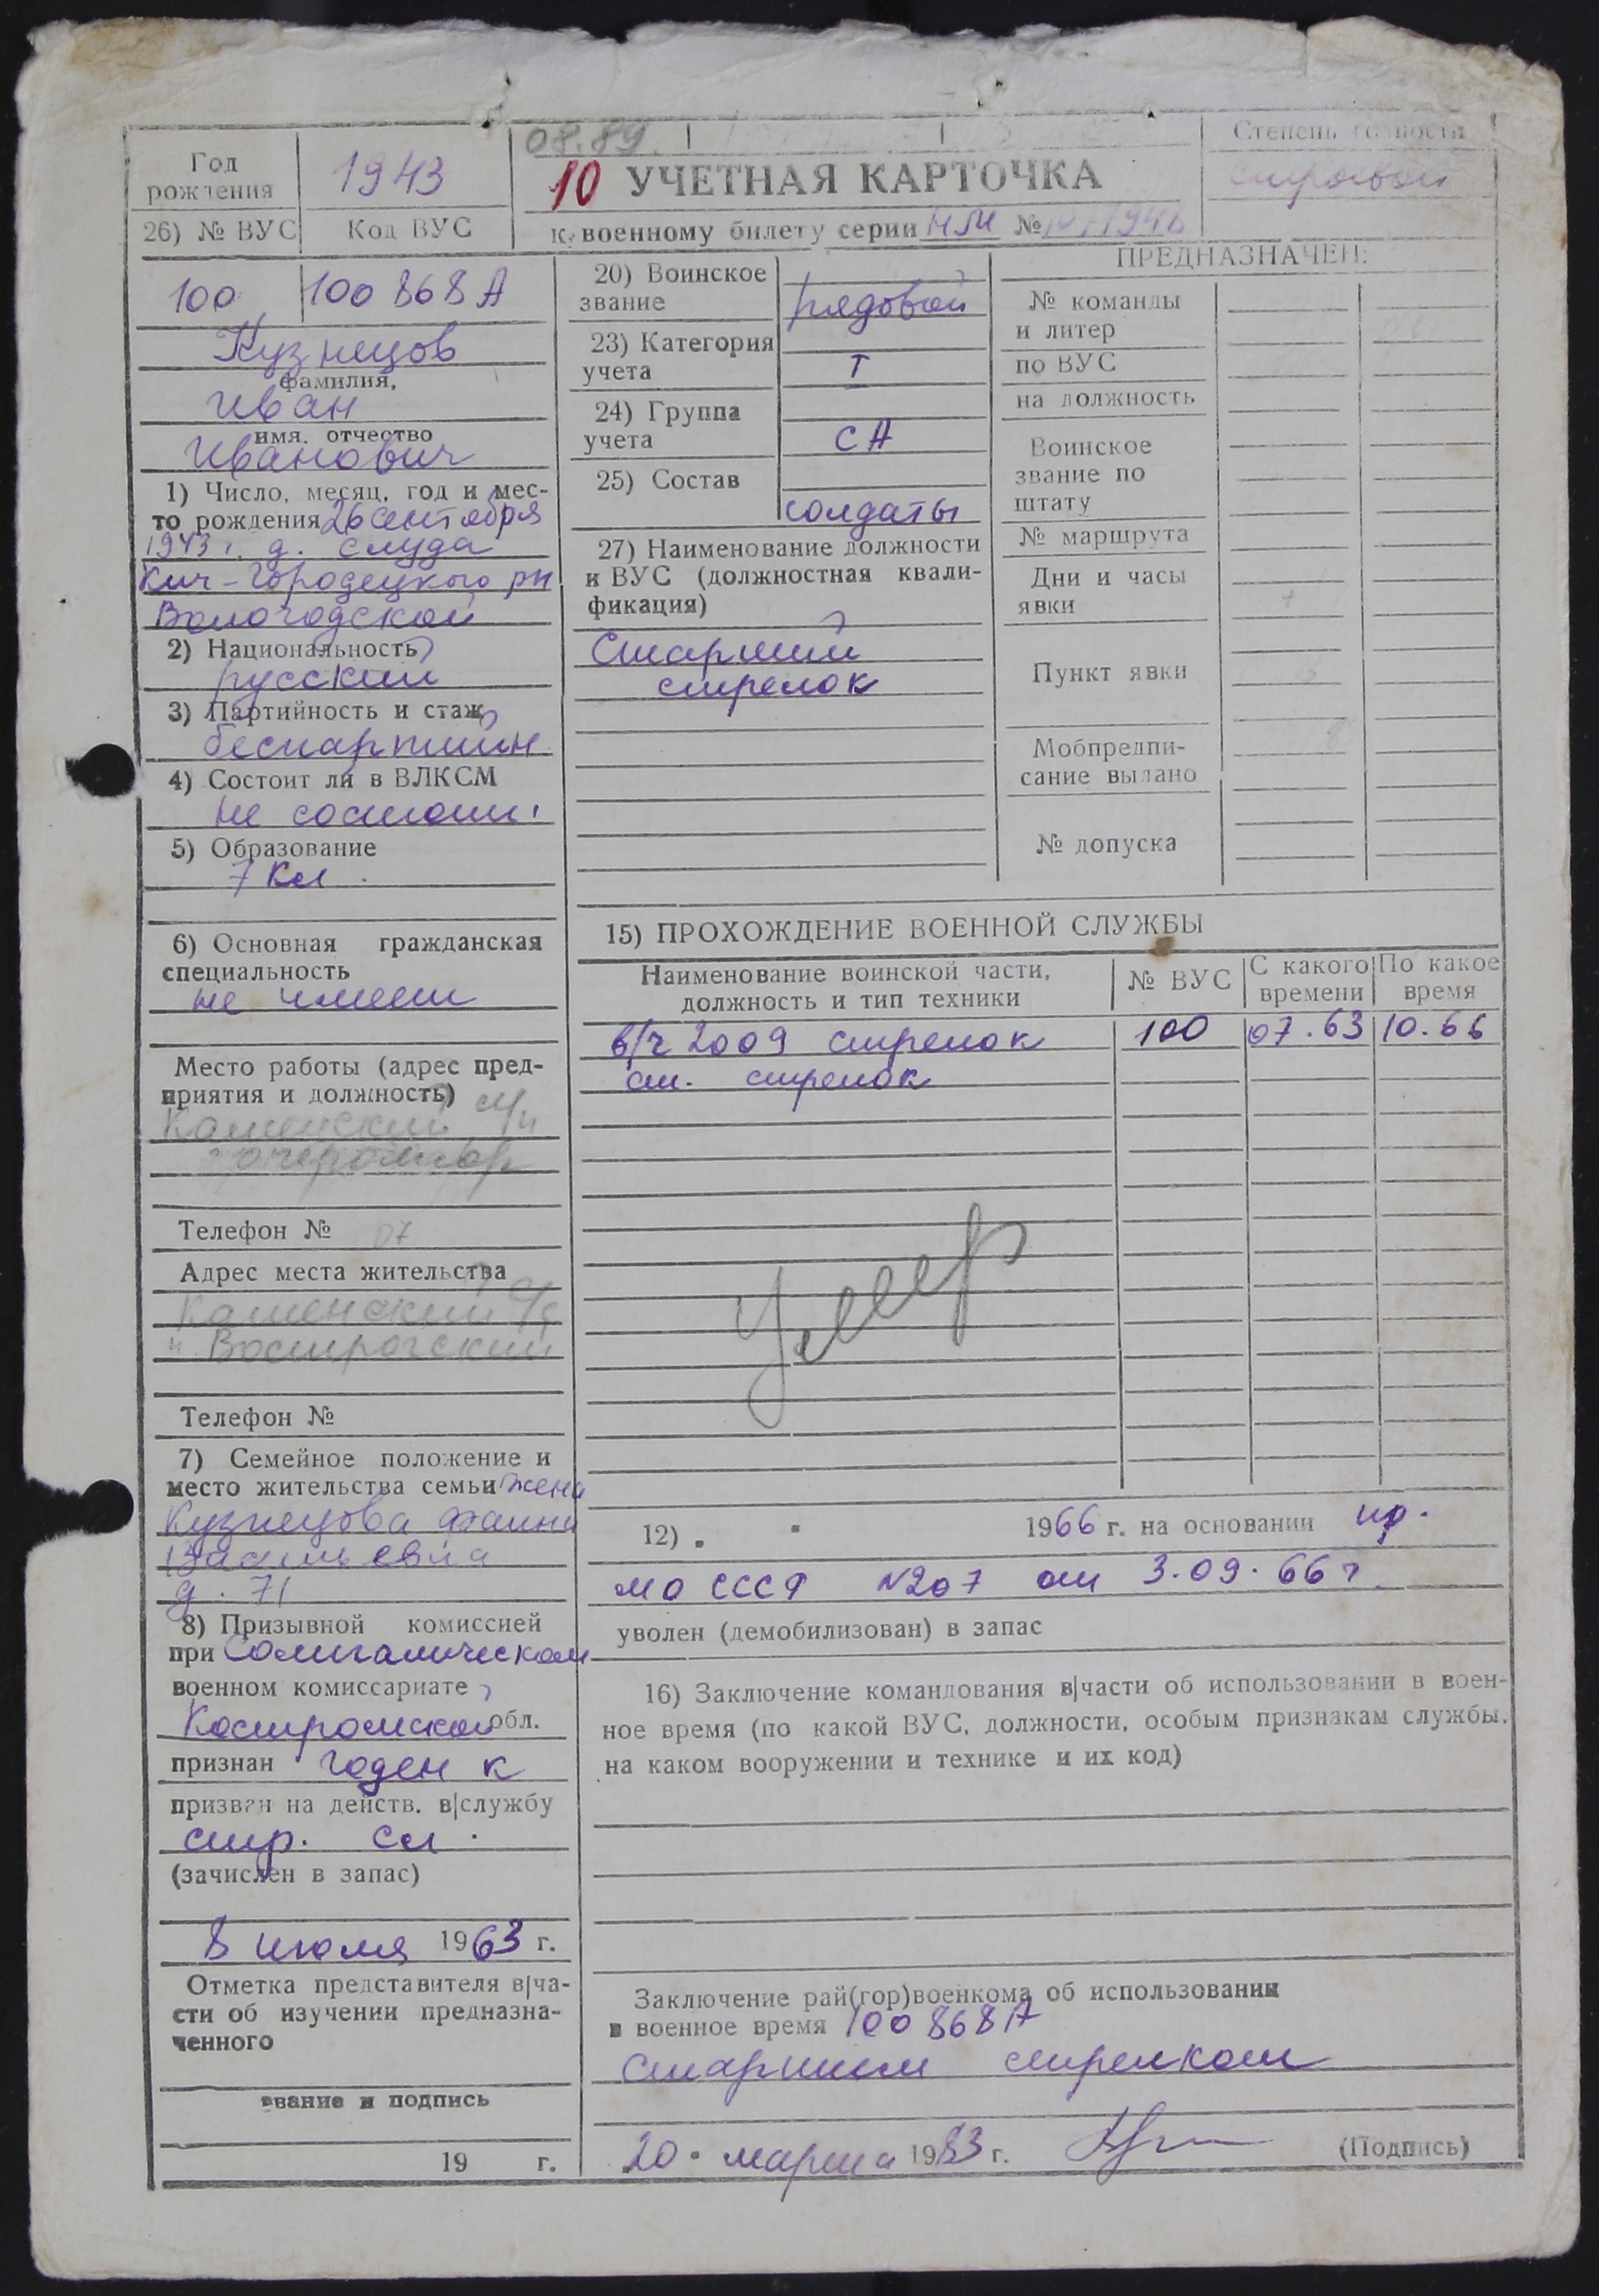 08.89.
Степень годности
Год рождения
1943
10 УЧЕТНАЯ КАРТОЧКА
строевой
26) № ВУС
Код ВУС
К военному билету серии НМ №
100
100868А
Кузнецов
фамилия,
Иван
имя, отчество
Иванович
1) Число, месяц, год и мес-
то рождения 26 сентября
1943 г. д. Слуда
Кич-Городецкого рн
Вологодской
2) Национальность
русский
3) Партийность и стаж
беспартийн
4) Состоит ли в ВЛКСМ
не состоит
5) Образование
7 кл.
6) Основная гражданская
специальность
не имеет
Место работы (адрес пред-
приятия и должность)
Телефон № 07
Адрес места жительства
Телефон №
7) Семейное положение и
место жительства семьи жена
Кузнецова Фаина
Васильевна
д. 71
8) Призывной комиссией
при Солигаличском
военном комиссариате
Костромской обл.
признан годен к
призван на действ. в|службу
стр. сл.
(зачислен в запас)
8 июля 1963 г.
Отметка представителя в|ча-
сти об изучении предназна-
ченного
звание и подпись
19 г.
20) Воинское
звание
рядовой
23) Категория
учета
I
24) Группа
учета
СА
25) Состав
солдаты
27) Наименование должности
и ВУС (должностная квали-
фикация)
Старший
стрелок
ПРЕДНАЗНАЧЕН:
№ команды
и литер
по ВУС
на должность
Воинское
звание по
штату
№ маршрута
Дни и часы
явки
Пункт явки
Мобпредпи-
сание выдано
№ допуска
15) ПРОХОЖДЕНИЕ ВОЕННОЙ СЛУЖБЫ
Наименование воинской части,
должность и тип техники
№ ВУС
С какого
времени
По какое
время
в/ч 2009 стрелок 100 07.63 10.66
ст. стрелок
Умер
12) " " 1966 г. на основании пр.
МО СССР N207 от 3.09.66 г.
уволен (демобилизован) в запас
16) Заключение командования в|части об использовании в воен-
ное время (по какой ВУС, должности, особым признакам службы,
на каком вооружении и технике и их код)
Заключение рай(гор)военкома об использовании
в военное время 100868А
старшим стрелком
20 " марта 1983 г.
(Подпись)